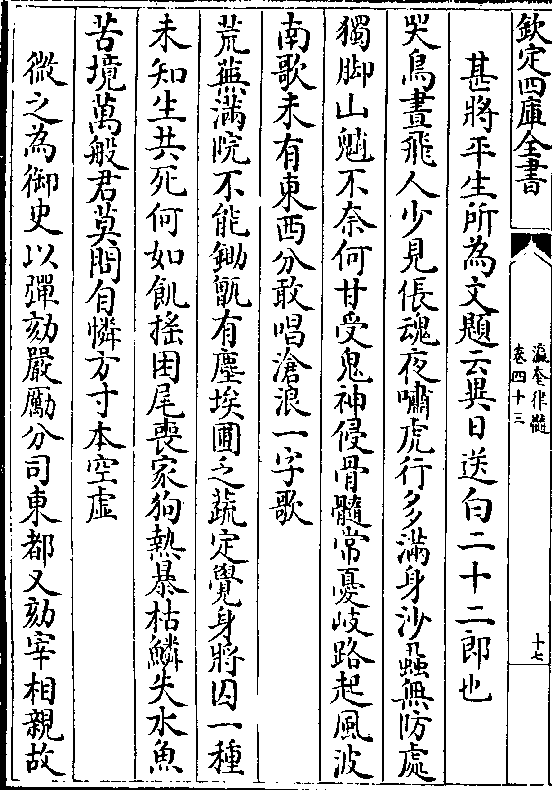 欽定四庫全書
瀛奎律髓
卷四十三
十七
甚將平生所為文題云異日送白二十二郎也
哭鳥晝飛人少見倀魂夜嘯虎行多滿身沙蝨無防處
獨脚山魈不奈何甘受鬼神侵骨髓常憂歧路起風波
南歌未有東西分敢唱滄浪一字歌
荒蕪滿院不能鋤甑有塵埃圃乏蔬定覺身將囚一種
未知生共死何如飢搖困尾喪家狗熱暴枯鱗失水魚
苦境萬般君莫問自憐方寸本空虛
微之為御史以彈劾嚴勵分司東都又劾宰相親故